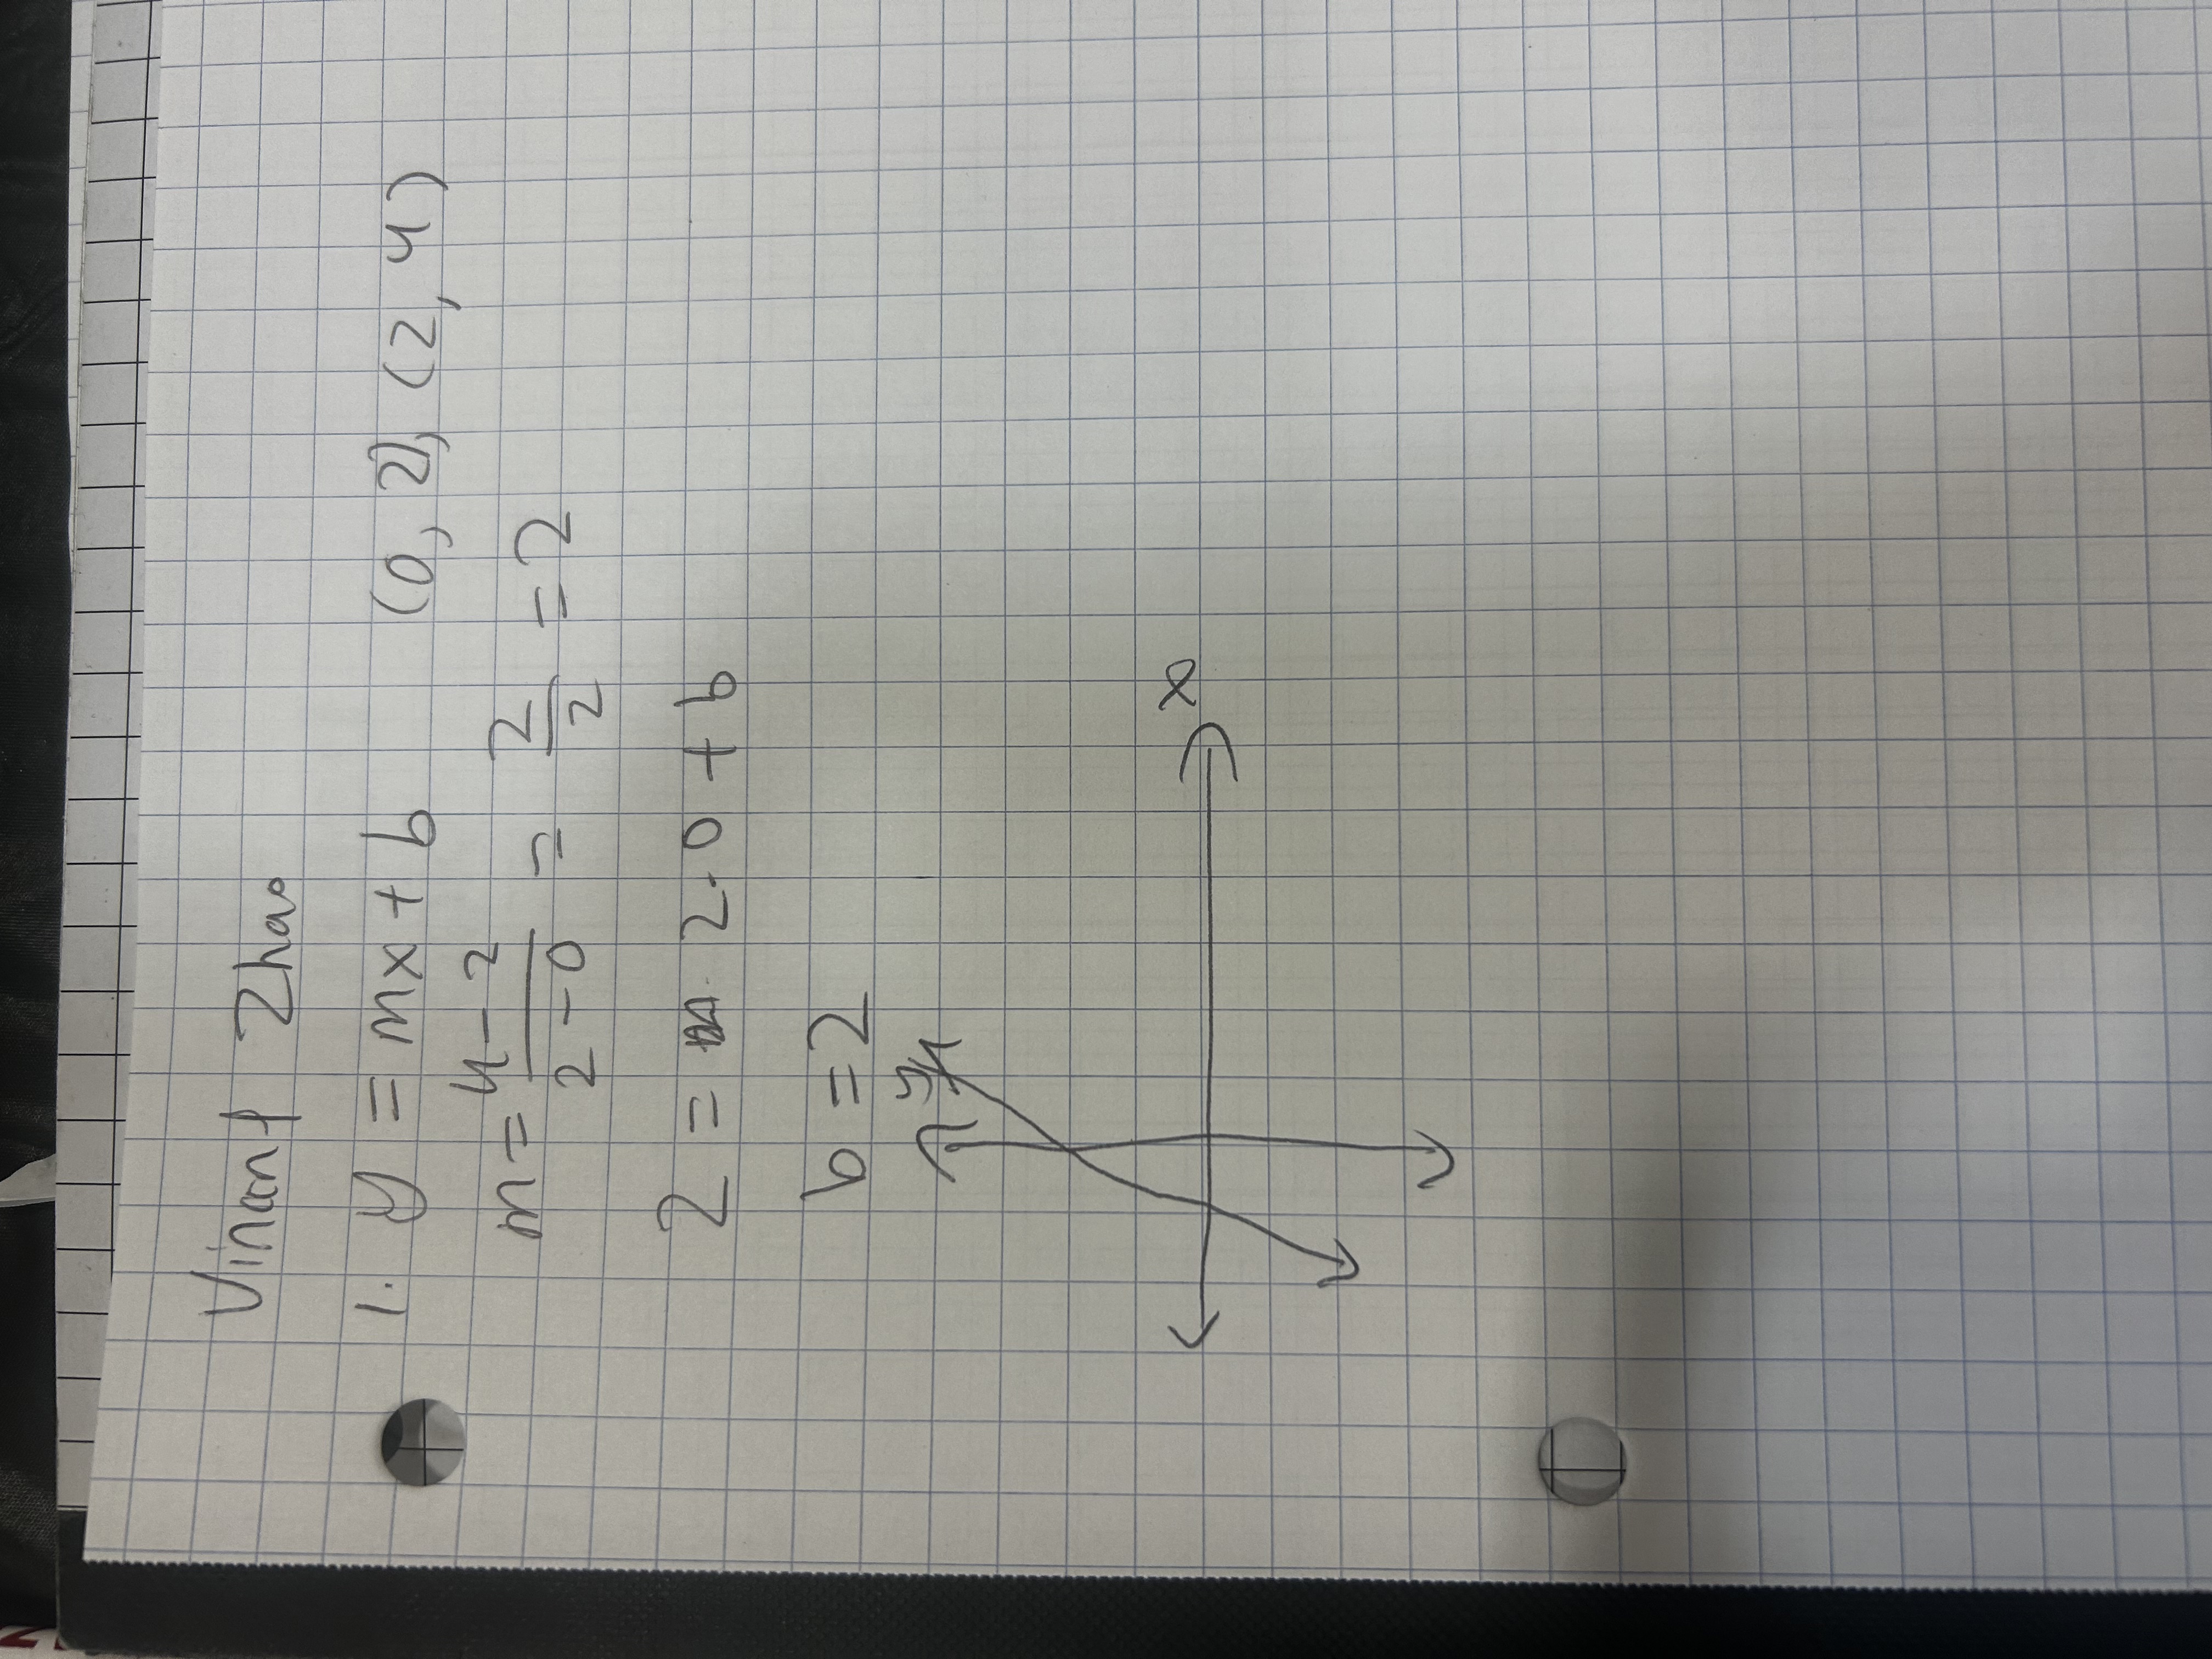 Vincent Zhao
1. y = mx + b (0, 2), (2, 4)
m = 4 - 2 / 2 - 0 = 2 / 2 = 2
2 = 2 · 0 + b
b = 2
y
x